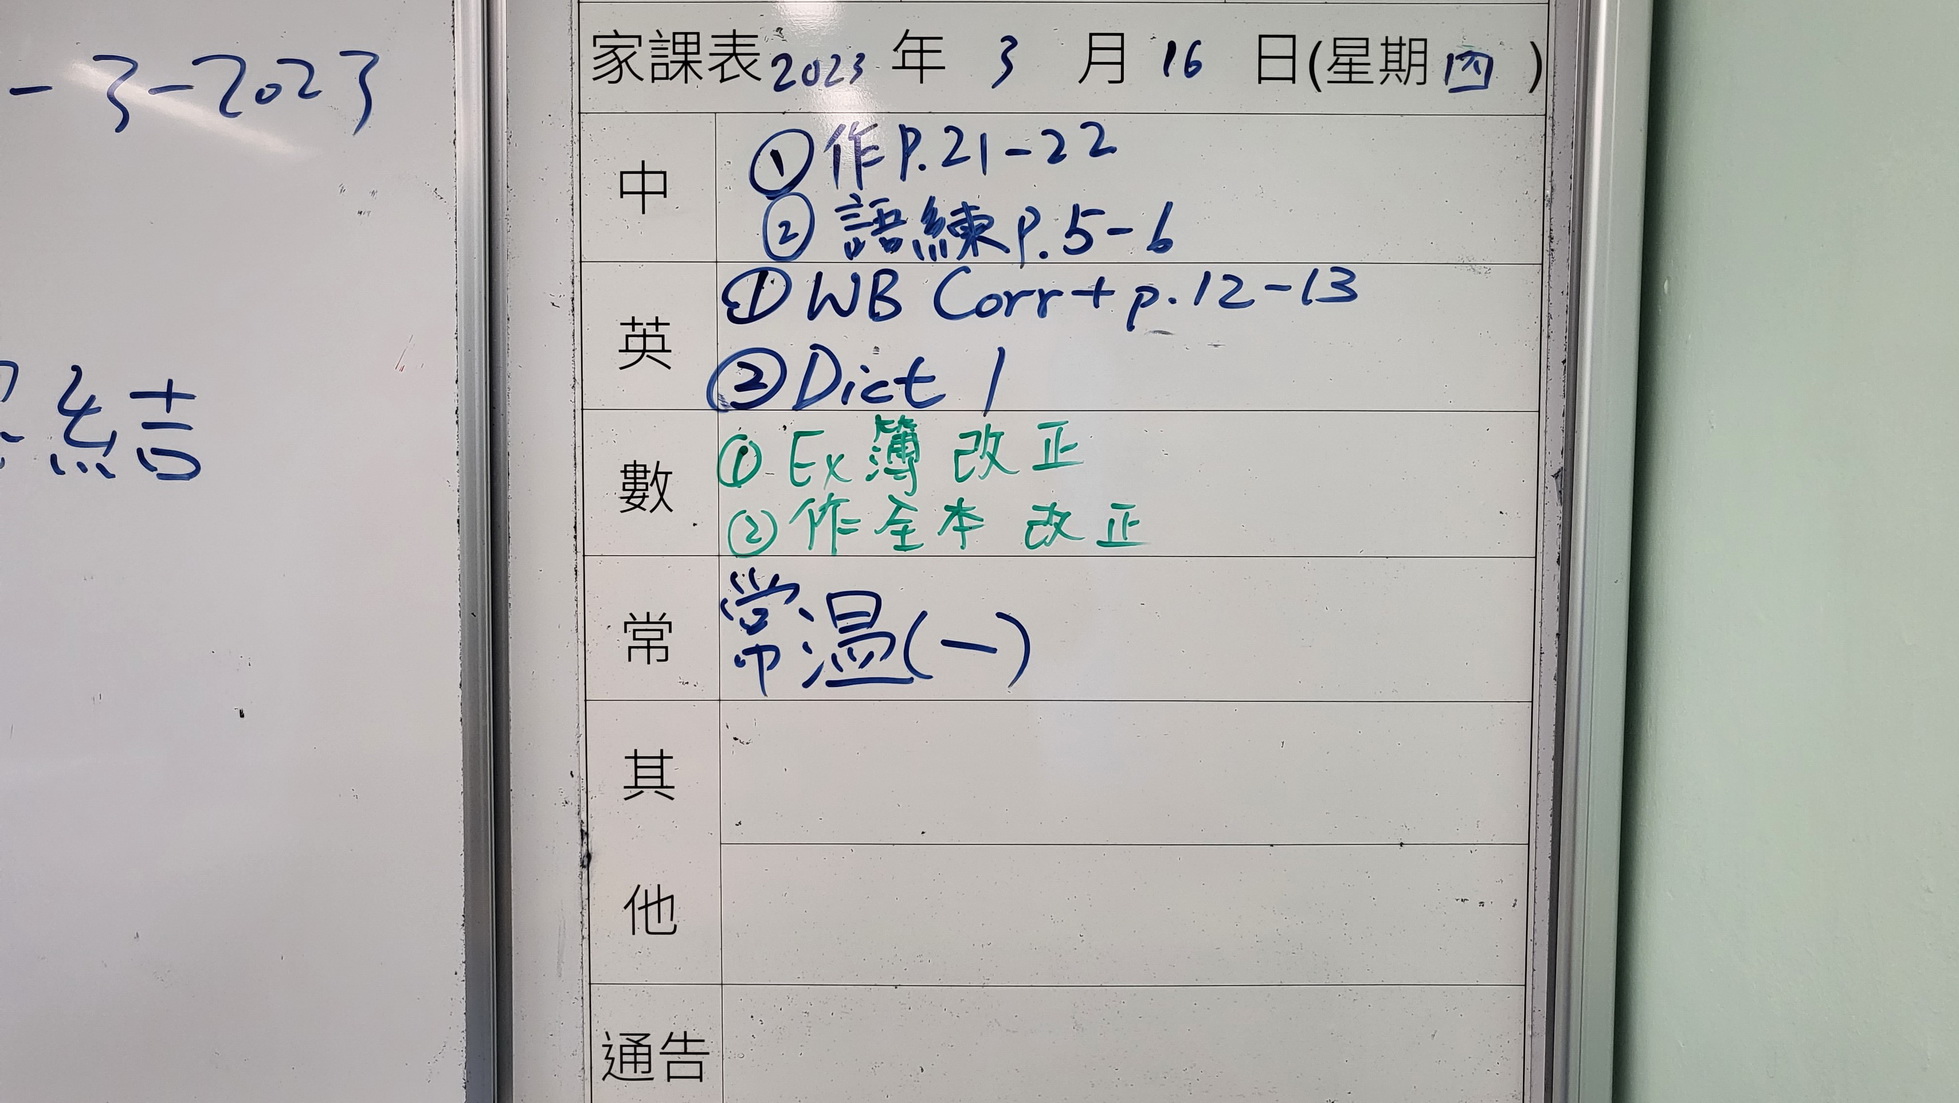 -3-2023
結
家課表2023年3月16日(星期四)
中
①作P.21-22
②語練P.5-6
英
①WB Corr + p.12-13
②Dict 1
數
①Ex簿 改正
②作全本 改正
常
常温(一)
其
他
通告